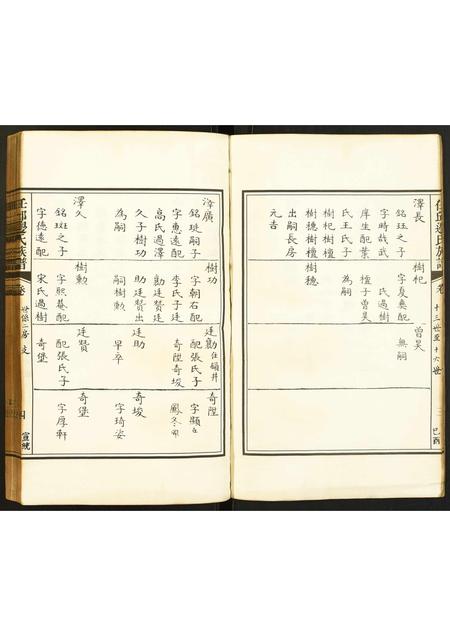 澤長
銘珏之子
字時哉武
庠生配葉
氏王氏子
樹杞樹檀
樹穗樹檀
出嗣長房
元吉
樹杞
字夏奠配
氏過樹
檀子曾昊
為嗣
樹檀
樹穗
曾昊
無嗣
十三世至十六世
己酉
澤廣
銘珽嗣子
字惠遠配
高氏過澤
久子樹功
為嗣
澤久
銘珽之子
字德遠配
樹功
字朝右配
李氏子廷
勛廷贊廷
助廷贊出
嗣樹勳
樹勳
字熙菴配
宋氏過樹
廷勛
配張氏子
奇陞奇埈
廷助
早卒
廷贊
配張氏子
奇堡
奇陞
字顯
奇埈
字琦姿
奇堡
字厚軒
任邱邊氏族譜
卷
世系二房
宣統